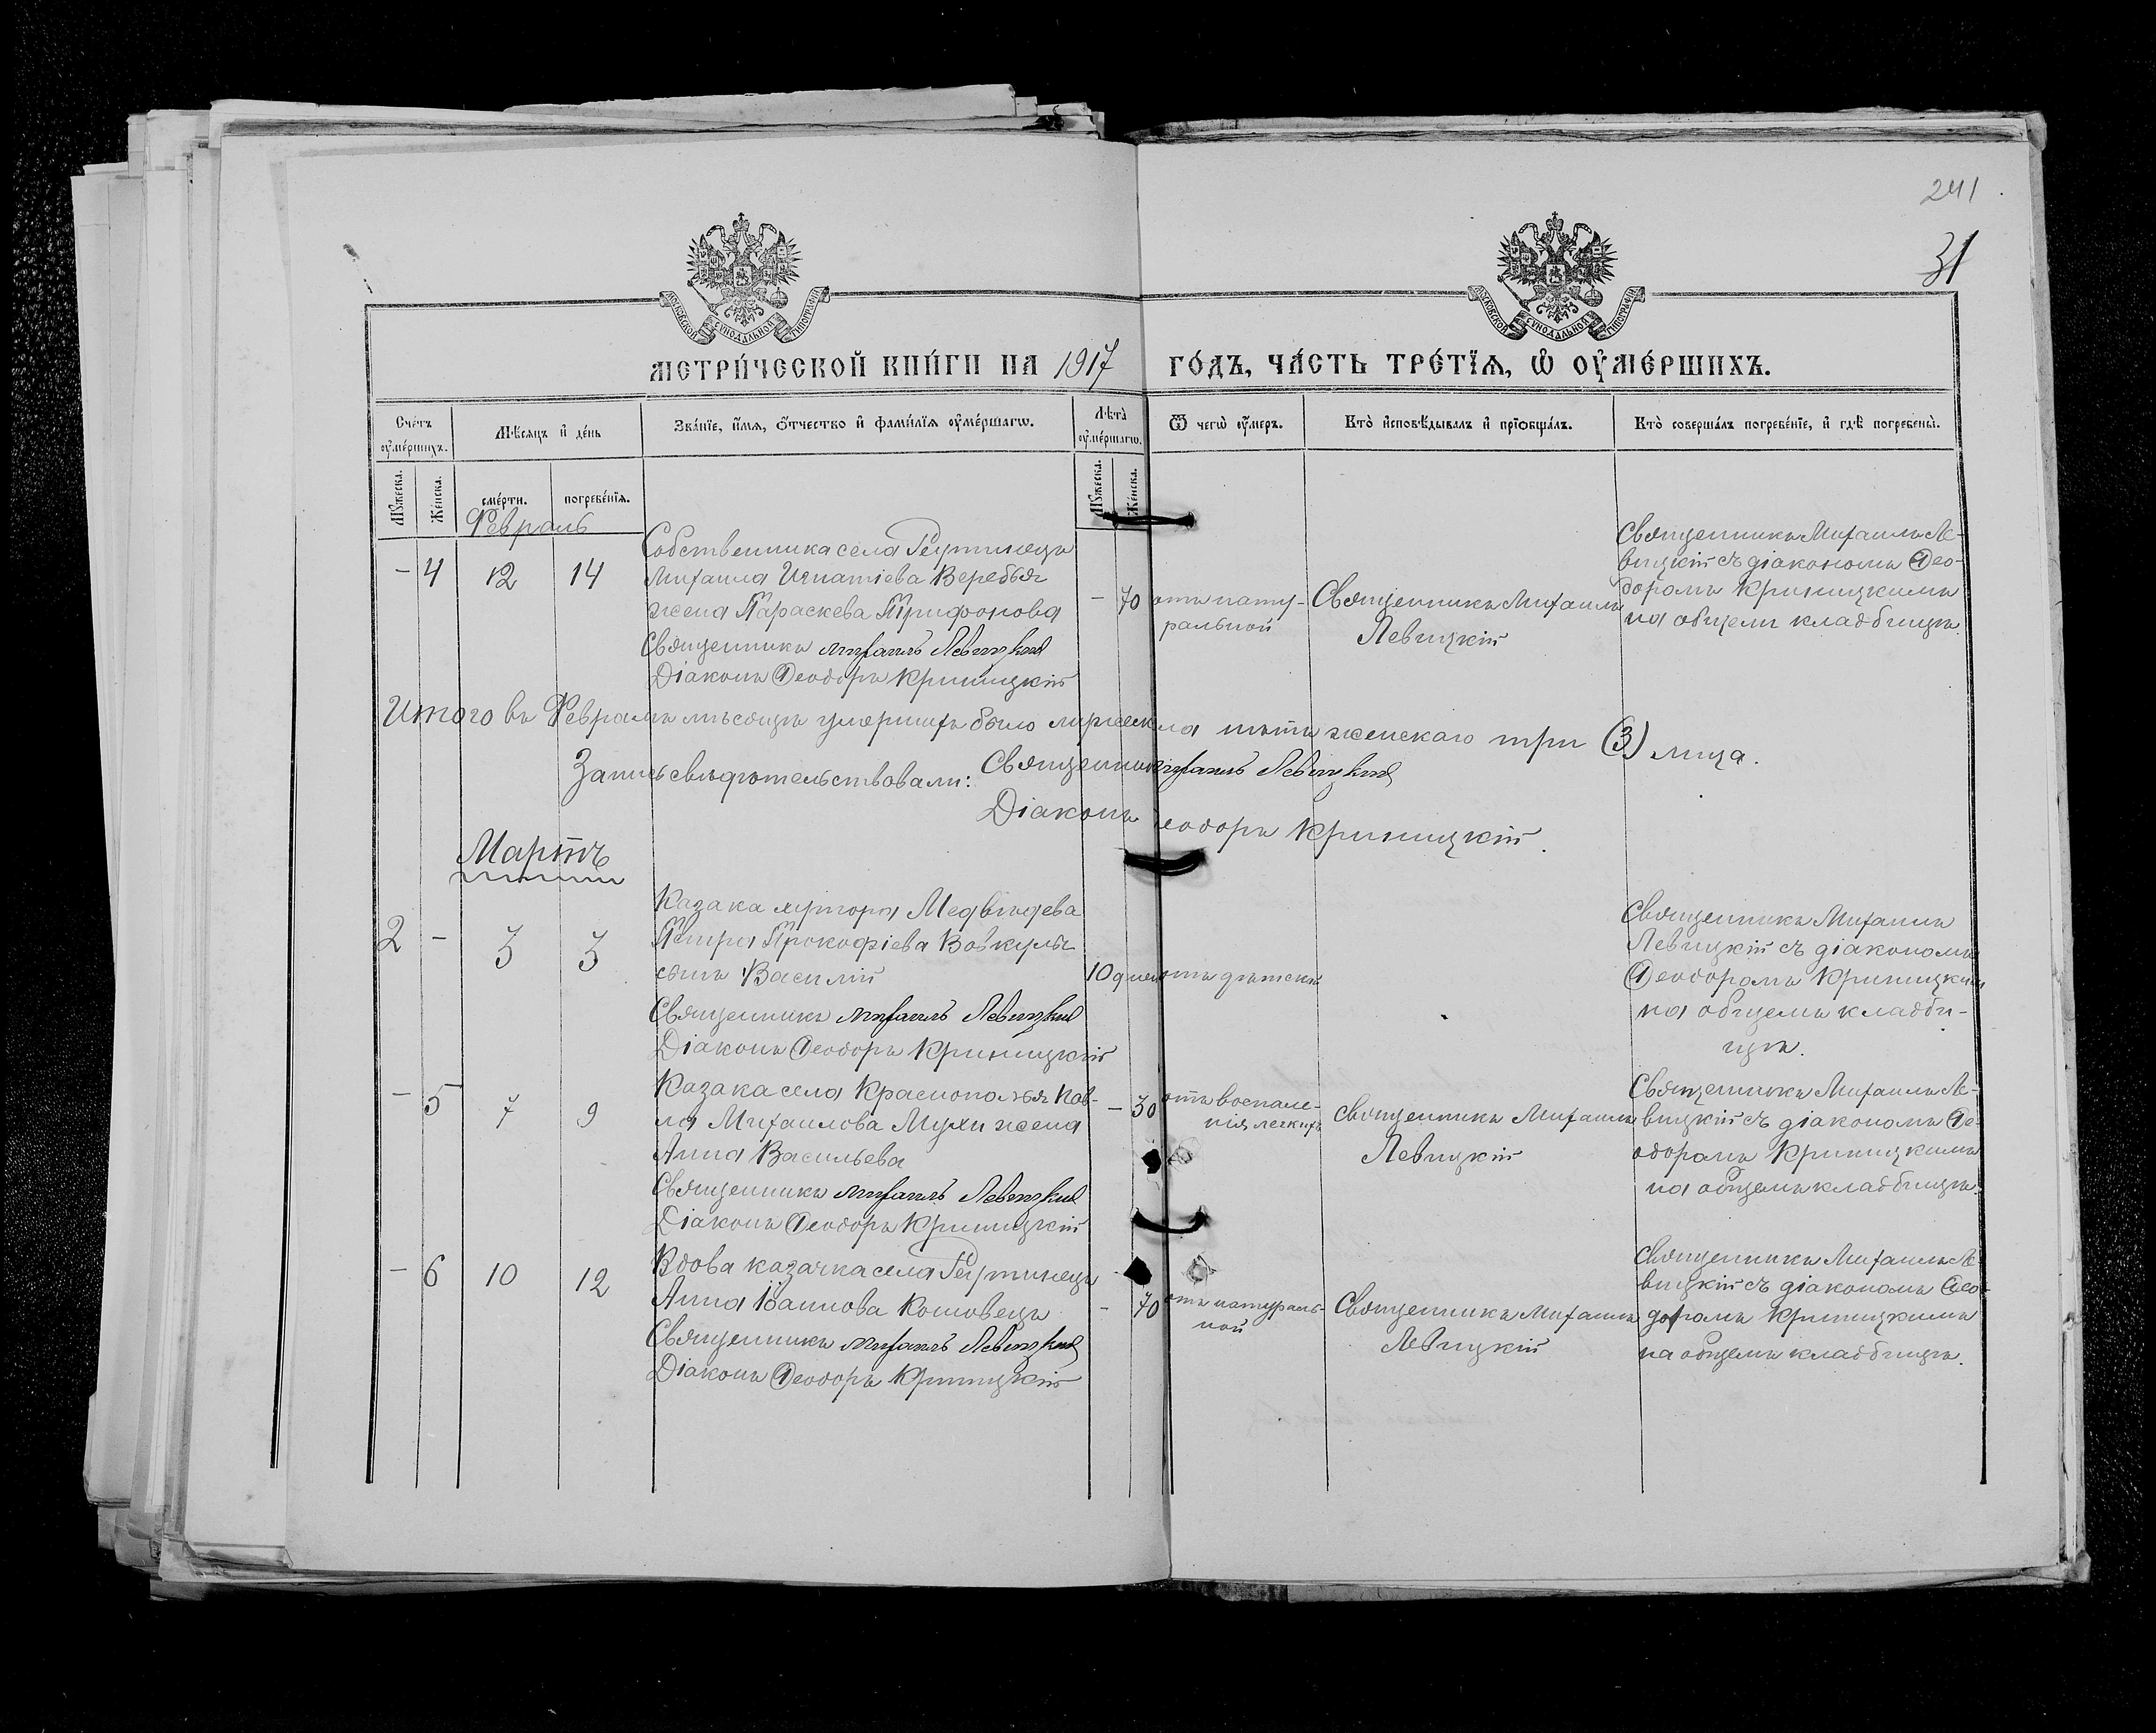 241
31
МОСКОВСКОЙ СѴНОДАЛЬНОЙ ТИПОГРАФІИ
МОСКОВСКОЙ СѴНОДАЛЬНОЙ ТИПОГРАФІИ
МЕТРИ́ЧЕСКОЙ КНИ́ГИ НА 1917 ГО́ДЪ, ЧА́СТЬ ТРЕ́ТЇѦ, Ѡ҆ ОУ҆МЕ́РШИХЪ.
Сче́тъ оу҆ме́ршихъ.
Мѣ́сѧцъ и҆ де́нь
Зва́нїе, и҆́мѧ, ѻ҆́тчество и҆ фами́лїѧ оу҆ме́ршагѡ.
Лѣ́та оу҆ме́ршагѡ.
Ѿ чегѡ̀ оу҆́меръ.
Кто̀ и҆сповѣ́дывалъ и҆ прїѻбща́лъ.
Кто̀ соверша́лъ погребе́нїе, и҆ гдѣ̀ погребены̀.
Мꙋ́жеска.
Же́нска.
сме́рти.
погребе́нїѧ.
Мꙋ́жеска.
Же́нска.
Февраль
- 4 12 14
Собственника села Реутинецъ
Михаила Игнатіева Веребья
жена Параскева Трифонова
Священникъ Михаилъ Левицкій
Діаконъ Ѳеодоръ Криницкій
- 70
отъ нату-
ральной
Священникъ Михаилъ
Левицкій
Священникъ Михаилъ Ле-
вицкій съ діакономъ Ѳео-
доромъ Криницкимъ
на общемъ кладбищѣ.
Итого въ Февралѣ мѣсяцѣ умершихъ было мужеска женскаго три (3) лица.
Запись свидѣтельствовали: Священникъ Михаилъ Левицкій
Діаконъ Ѳеодоръ Криницкій.
Мартъ
2 - 3 3
Казака хутора Медвѣдева
Петра Прокофіева Вовкулы
сынъ Василій
Священникъ Михаилъ Левицкій
Діаконъ Ѳеодоръ Криницкій
10 дней
отъ дѣтской
Священникъ Михаилъ
Левицкій съ діакономъ
Ѳеодоромъ Криницкимъ
на общемъ кладби-
щѣ.
- 5 7 9
Казака села Краснополья Пав-
ла Михаилова Мухи жена
Анна Васильева
Священникъ Михаилъ Левицкій
Діаконъ Ѳеодоръ Криницкій
- 30
отъ воспале-
нія легкихъ
Священникъ Михаилъ
Левицкій
Священникъ Михаилъ Ле-
вицкій съ діакономъ Ѳе-
одоромъ Криницкимъ
на общемъ кладбищѣ.
- 6 10 12
Вдова казачка села Реутинецъ
Анна Іоаннова Кошовецъ
Священникъ Михаилъ Левицкій
Діаконъ Ѳеодоръ Криницкій
- 70
отъ натураль-
ной
Священникъ Михаилъ
Левицкій
Священникъ Михаилъ Ле-
вицкій съ діакономъ Ѳео-
доромъ Криницкимъ
на общемъ кладбищѣ.